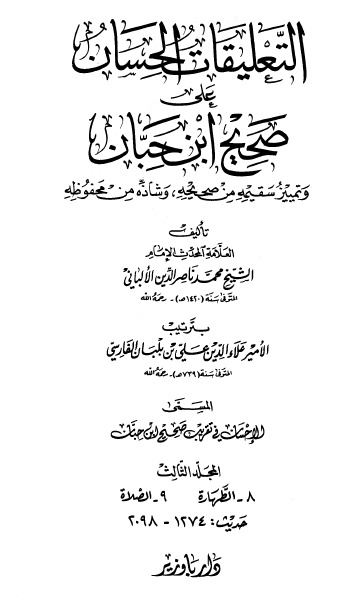 التعليقات الحسان
على
صحيح ابن حبان
وتمييز سقيمه من صحيحه، وشاذه من محفوظه
تأليف
العلامة المحدث الإمام
الشيخ محمد ناصر الدين الألباني
المتوفى سنة (١٤٢٠هـ) - رحمه الله
بترتيب
الأمير علاء الدين علي بن بلبان الفارسي
المتوفى سنة (٧٣٩هـ) - رحمه الله
المسمى
الإحسان في تقريب صحيح ابن حبان
المجلد الثالث
٨ - الطهارة ٩ - الصلاة
حديث: ١٢٧٤ - ٢٠٩٨
دار باوزير